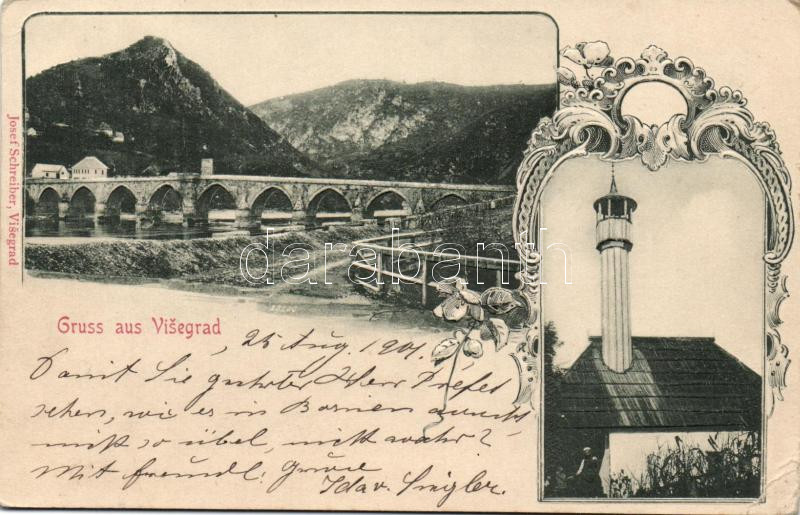 Josef Schreiber, Višegrad
Gruss aus Višegrad
25 Aug. 1901.
Damit Sie geehrter Herr Präfect
sehen, wie es in Bosnien aussieht
nicht so übel, nicht wahr?
Mit freundl. Grüsse
Ida v. Singler.
darabanth